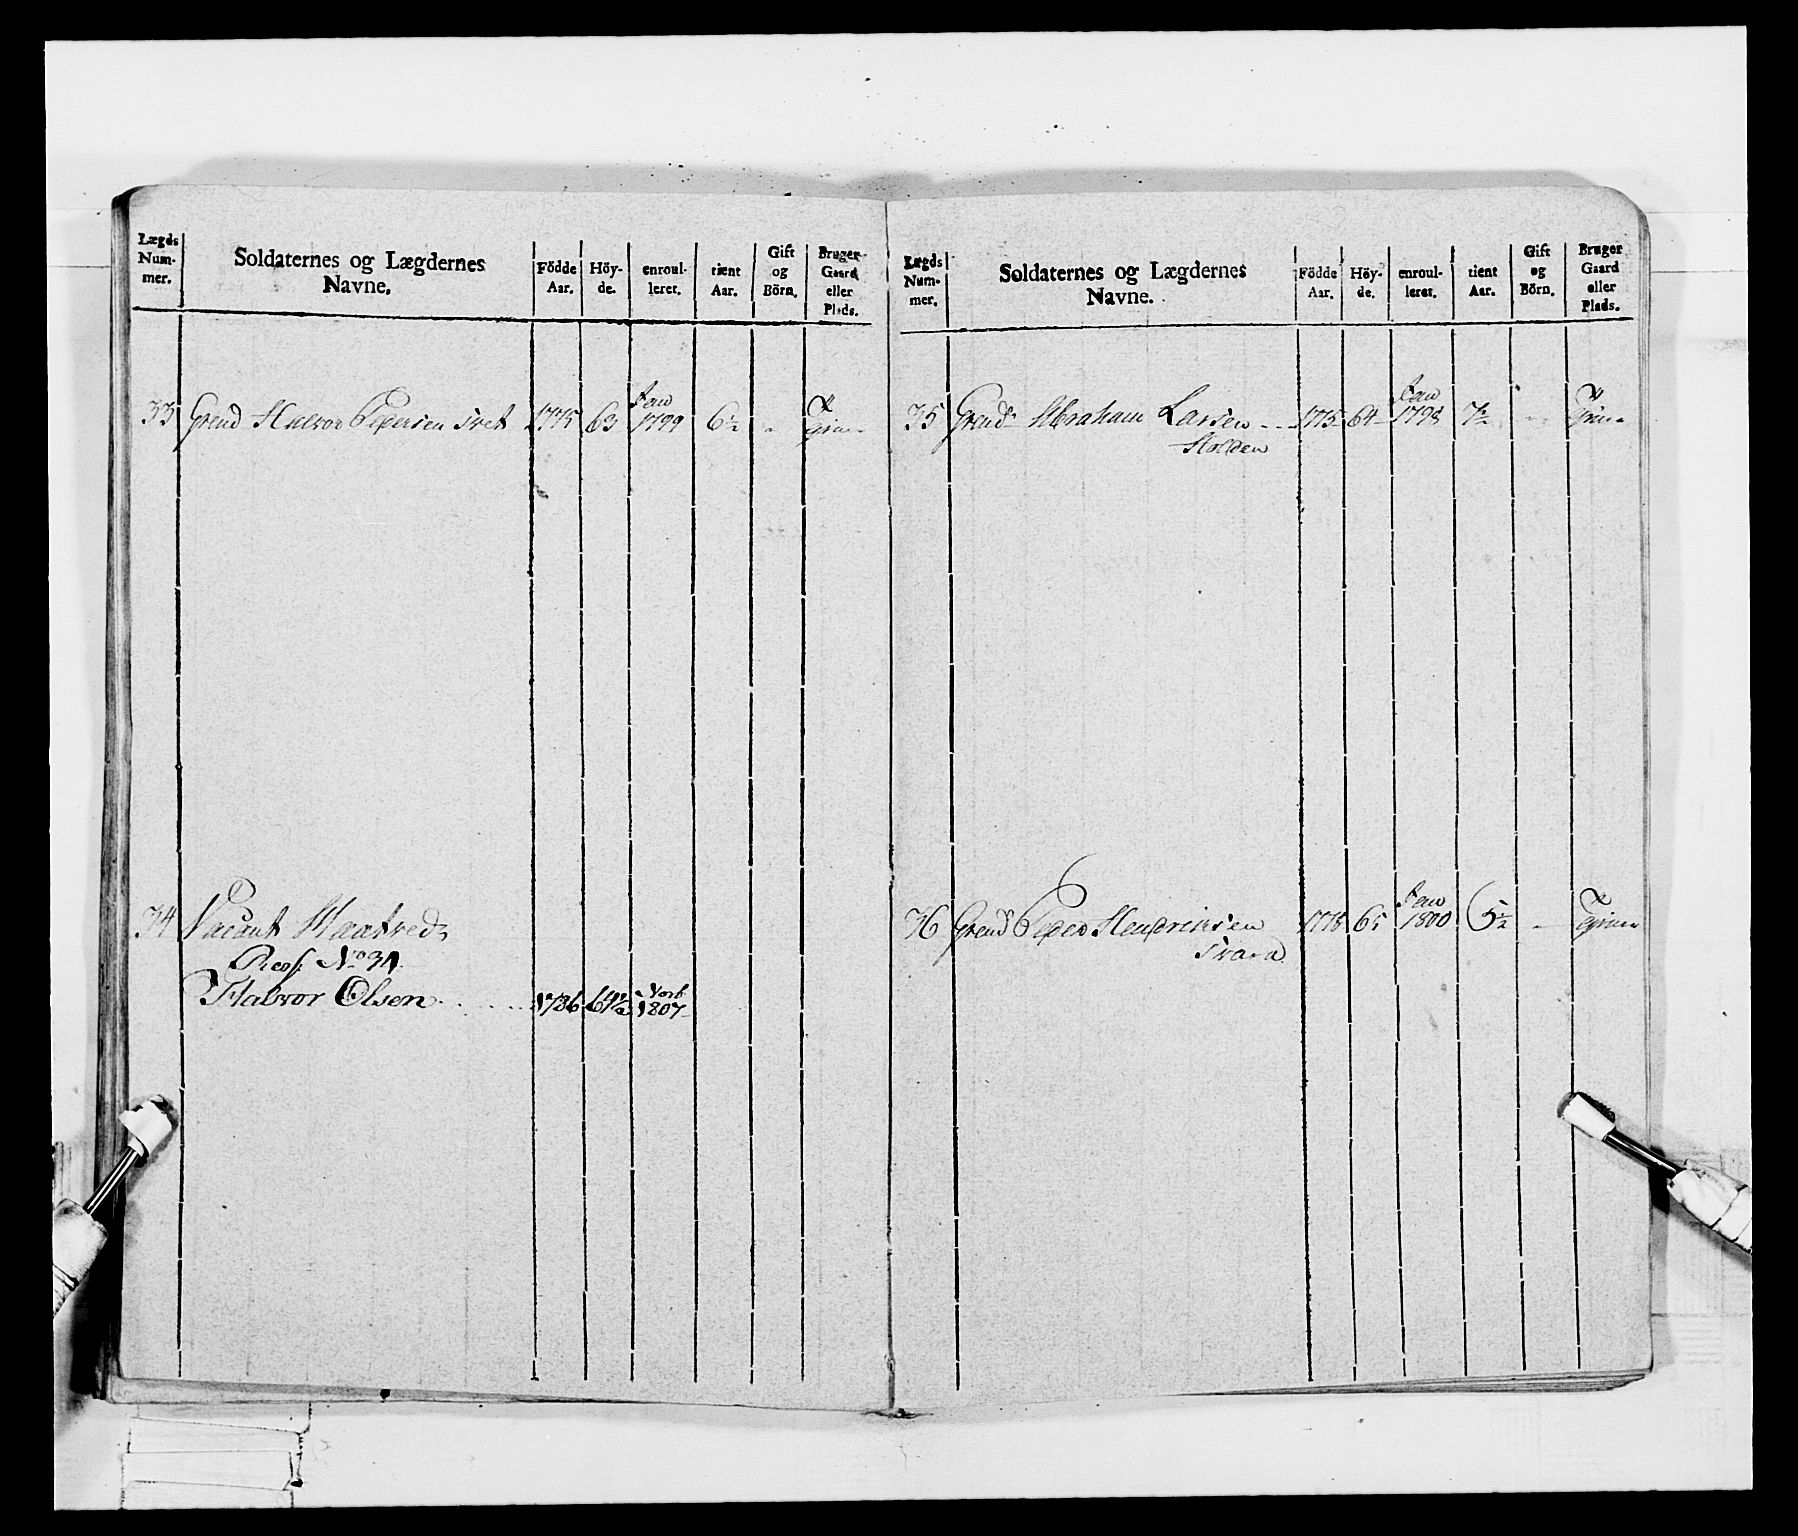 Lægds Num- mer.
Soldaternes og Lægdernes Navne.
Födde Aar.
Höy- de.
enroul- leret.
tient Aar.
Gift og Börn.
Bruger Gaard eller Plads.
33 Grend Halvor Pedersen 1775 63 Jan 1799 6½
34 Vacant
Halvor Olsen 1786 64½ 1807
Lægds Num- mer.
Soldaternes og Lægdernes Navne.
Födde Aar.
Höy- de.
enroul- leret.
tient Aar.
Gift og Börn.
Bruger Gaard eller Plads.
35 Grend Abraham Larsen 1775 64 Jan 1798 7½
Holden
36 Grend Peder Hendrichsen 1778 65 Jan 1800 5½